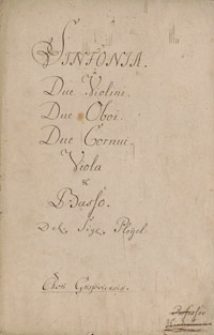 SINFONIA.
a
Due Violini.
Due Oboi.
Due Cornui.
Viola
&
Basso.
Del. Sig. Pleyel.
Chori